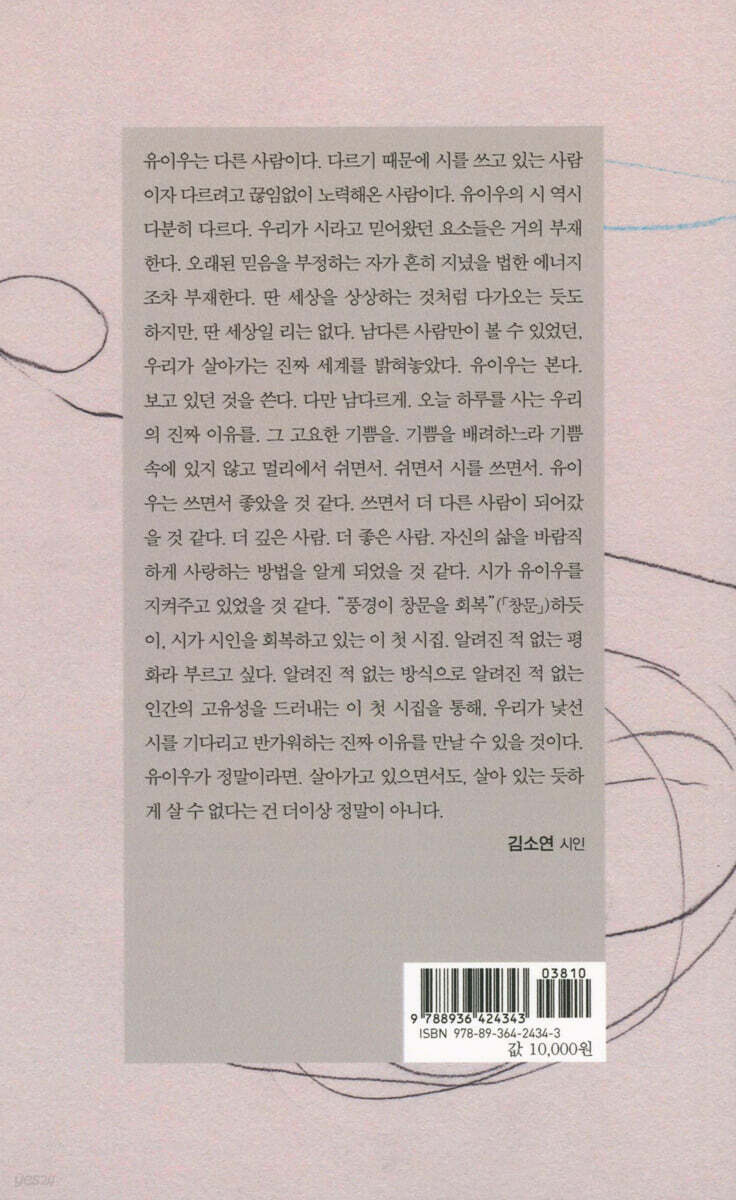 유이우는 다른 사람이다. 다르기 때문에 시를 쓰고 있는 사람
이자 다르려고 끊임없이 노력해온 사람이다. 유이우의 시 역시
다분히 다르다. 우리가 시라고 믿어왔던 요소들은 거의 부재
한다. 오래된 믿음을 부정하는 자가 흔히 지녔을 법한 에너지
조차 부재한다. 딴 세상을 상상하는 것처럼 다가오는 듯도
하지만, 딴 세상일 리는 없다. 남다른 사람만이 볼 수 있었던,
우리가 살아가는 진짜 세계를 밝혀놓았다. 유이우는 본다.
보고 있던 것을 쓴다. 다만 남다르게. 오늘 하루를 사는 우리
의 진짜 이유를. 그 고요한 기쁨을. 기쁨을 배려하느라 기쁨
속에 있지 않고 멀리에서 쉬면서. 쉬면서 시를 쓰면서. 유이
우는 쓰면서 좋았을 것 같다. 쓰면서 더 다른 사람이 되어갔
을 것 같다. 더 깊은 사람. 더 좋은 사람. 자신의 삶을 바람직
하게 사랑하는 방법을 알게 되었을 것 같다. 시가 유이우를
지켜주고 있었을 것 같다. “풍경이 창문을 회복”(「창문」)하듯
이, 시가 시인을 회복하고 있는 이 첫 시집. 알려진 적 없는 평
화라 부르고 싶다. 알려진 적 없는 방식으로 알려진 적 없는
인간의 고유성을 드러내는 이 첫 시집을 통해, 우리가 낯선
시를 기다리고 반가워하는 진짜 이유를 만날 수 있을 것이다.
유이우가 정말이라면. 살아가고 있으면서도, 살아 있는 듯하
게 살 수 없다는 건 더이상 정말이 아니다.
김소연 시인
03810
9 788936 424343
ISBN 978-89-364-2434-3
값 10,000원
yes24